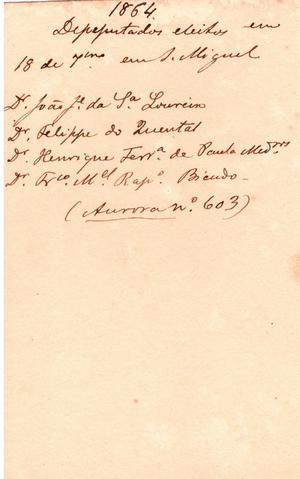 1864
Depeputados eleitos em
18 de 7bro em S. Miguel
Dr. João Jé. da Sª Loureiro
Dr. Filippe do Quental
Dr. Henrique Ferrª de Paula Medros
Dr. Frco. Mel Rapº. Bicudo -
(Aurora nº. 603)